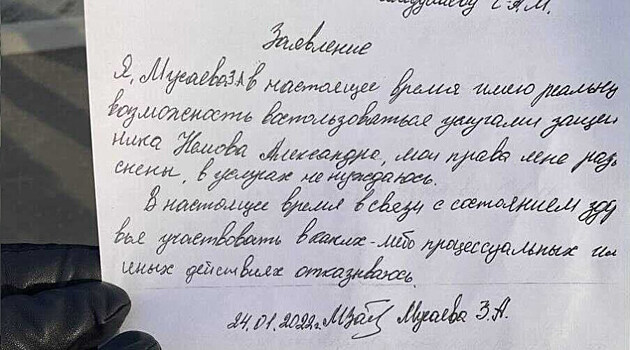 С.А.М.
Заявление
Я, Мусаева З.А в настоящее время имею реальну
возможность воспользоваться услугами защит
ника Немова Александра, мои права мне разъ
снены, в услугах не нуждаюсь.
В настоящее время в связи с состоянием здор
вья участвовать в каких-либо процессуальных ил
иных действиях отказываюсь.
24.01.2022г. Мусаева З.А.